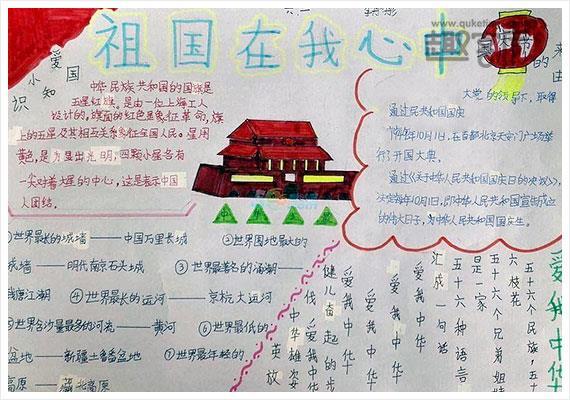 www.quketi
六.一
祖国在我心中
爱国
小知
识
中华民族共和国的国旗是
五星红旗。是由一位上海工人
设计的,旗面的红色是象征革命,旗
上的五星及其相互关系象征全国人民。星用
黄色,是为显出光明,四颗小星各有
一尖对着大星的中心,这是表示中国
人团结。
大党的领导下,取得
通过民共和国国庆
1949年10月1日,在首都北京天安门广场举
行了开国大典。
通过《关于中华人民共和国国庆日的决议》,
决定每年10月1日,即中华人民共和国宣告成立
的伟大日子,为中华人民共和国国庆生。
①世界最长的城墙——中国万里长城
②世界围地最大的
城墙——明代南京石头城
③世界最著名的涌潮——
钱塘江潮
④世界最长的运河——京杭大运河
⑤世界含沙量最多的河流——黄河
⑥世界最低的
盆地——新疆土鲁番盆地
⑦世界最年轻的
高原——藏北高原
爱我中华
五十六个民族,五十
六枝花
五十六个兄弟姐妹
是一家
五十六种语言
汇成一句话
爱我中华
爱我中华
爱我中华
爱我中华
健儿奋起的步